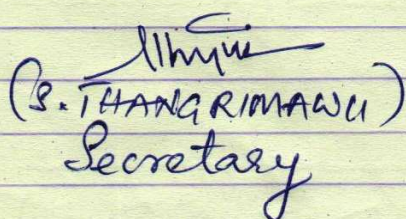 (S. THANGRIMAWII)
Secretary